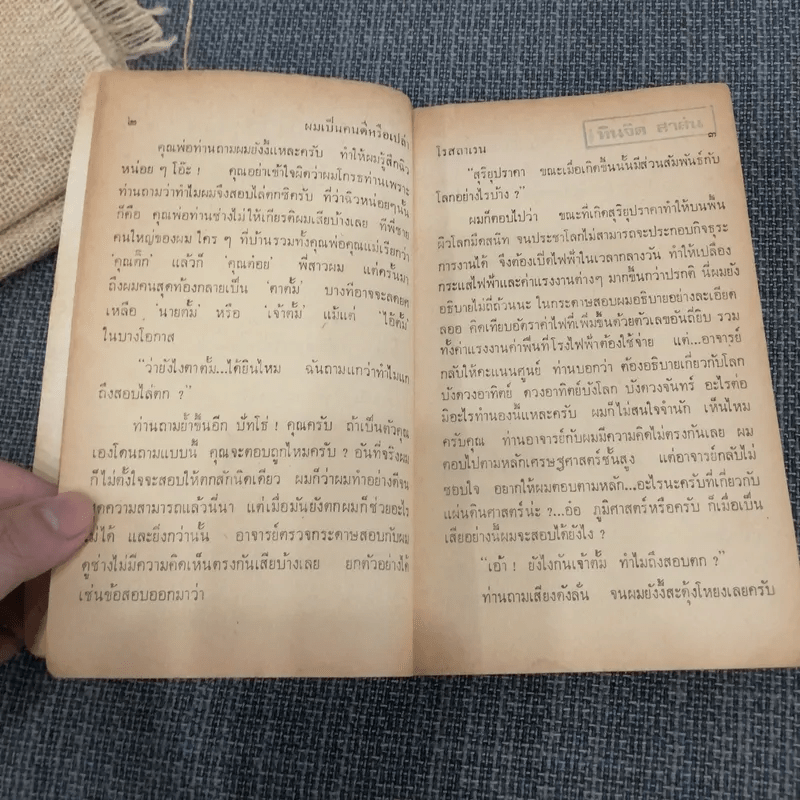 ๒ ผมเป็นคนดีหรือเปล่า
คุณพ่อท่านถามผมยังงี้แหละครับ ทำให้ผมรู้สึกฉิว
หน่อย ๆ โอ๊ะ ! คุณอย่าเข้าใจผิดว่าผมโกรธท่านเพราะ
ท่านถามว่าทำไมผมจึงสอบไล่ตกซิครับ ที่ว่าฉิวหน่อยๆนั้น
ก็คือ คุณพ่อท่านช่างไม่ให้เกียรติผมเสียบ้างเลย ทีพี่ชาย
คนใหญ่ของผม ใคร ๆ ที่บ้านรวมทั้งคุณพ่อคุณแม่เรียกว่า
'คุณติ๊ก' แล้วก็ 'คุณต่อย' พี่สาวผม แต่ครั้นมา
ถึงผมคนสุดท้องกลายเป็น 'ตาตั้ม' บางทีอาจจะลดยศ
เหลือ 'นายตั้ม' หรือ 'เจ้าตั้ม' แม้แต่ 'ไอ้ตั้ม'
ในบางโอกาส
"ว่ายังไงตาตั้ม...ได้ยินไหม ฉันถามแกว่าทำไมแก
ถึงสอบไล่ตก ?"
ท่านถามย้ำขึ้นอีก ปัทโธ่ ! คุณครับ ถ้าเป็นตัวคุณ
เองโดนถามแบบนี้ คุณจะตอบถูกไหมครับ ? อันที่จริงผม
ก็ไม่ตั้งใจจะสอบให้ตกสักนิดเดียว ผมก็ว่าผมทำอย่างดีจน
สุดความสามารถแล้วนี่นา แต่เมื่อมันยังตกผมก็ช่วยอะไร
ไม่ได้ และยิ่งกว่านั้น อาจารย์ตรวจกระดาษสอบกับผม
ดูช่างไม่มีความคิดเห็นตรงกันเสียบ้างเลย ยกตัวอย่างได้
เช่นข้อสอบออกมาว่า
โรสลาเรน ๓
"สุริยุปราคา ขณะเมื่อเกิดขึ้นนั้นมีส่วนสัมพันธ์กับ
โลกอย่างไรบ้าง ?"
ผมก็ตอบไปว่า ขณะที่เกิดสุริยุปราคาทำให้บนพื้น
ผิวโลกมืดสนิท จนประชาโลกไม่สามารถจะประกอบกิจธุระ
การงานได้ จึงต้องเปิดไฟฟ้าในเวลากลางวัน ทำให้เปลือง
กระแสไฟฟ้าและค่าแรงงานต่างๆ มากขึ้นกว่าปรกติ นี่ผมยัง
อธิบายไม่ถี่ถ้วนนะ ในกระดาษสอบผมอธิบายอย่างละเอียด
ลออ คิดเทียบอัตราค่าไฟที่เพิ่มขึ้นด้วยตัวเลขอันถี่ยิบ รวม
ทั้งค่าแรงงานค่าฟืนที่โรงไฟฟ้าต้องใช้จ่าย แต่...อาจารย์
กลับให้คะแนนศูนย์ ท่านบอกว่า ต้องอธิบายเกี่ยวกับโลก
บังดวงอาทิตย์ ดวงอาทิตย์บังโลก บังดวงจันทร์ อะไรต่อ
มิอะไรทำนองนี้แหละครับ ผมก็ไม่สนใจจำนัก เห็นไหม
ครับคุณ ท่านอาจารย์กับผมมีความคิดไม่ตรงกันเลย ผม
ตอบไปตามหลักเศรษฐศาสตร์ชั้นสูง แต่อาจารย์กลับไม่
ชอบใจ อยากให้ผมตอบตามหลัก...อะไรนะครับที่เกี่ยวกับ
แผ่นดินศาสตร์น่ะ ?...อ๋อ ภูมิศาสตร์หรือครับ ก็เมื่อเป็น
เสียอย่างนี้ผมจะสอบได้ยังไง ?
"เอ้า ! ยังไงกันเจ้าตั้ม ทำไมถึงสอบตก ?"
ท่านถามเสียงดังลั่น จนผมยังงี้สะดุ้งโหยงเลยครับ